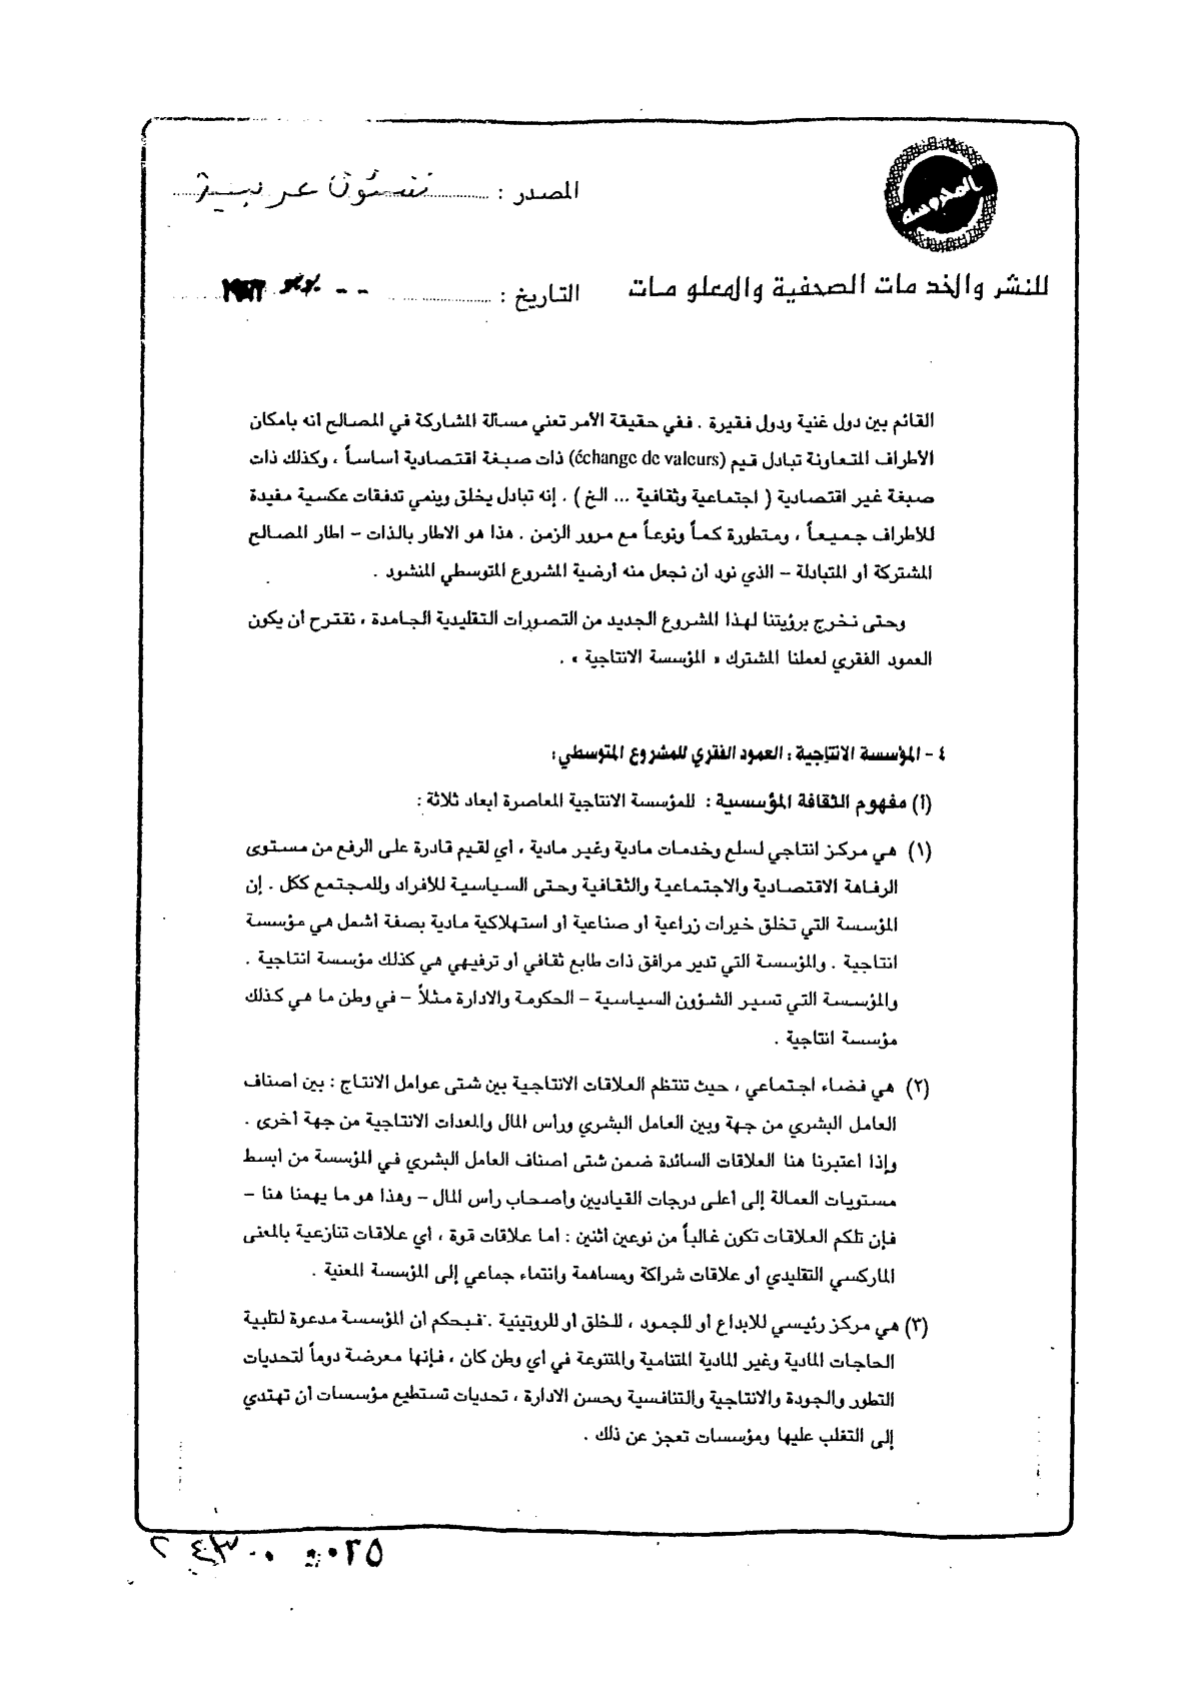 المحروسة
المصدر : شئون عربية
للنشر والخدمات الصحفية والمعلومات
التاريخ :
القائم بين دول غنية ودول فقيرة . ففي حقيقة الأمر تعني مسألة المشاركة في المصالح انه بامكان
الأطراف المتعاونة تبادل قيم (échange de valeurs) ذات صبغة اقتصادية أساساً ، وكذلك ذات
صبغة غير اقتصادية ( اجتماعية وثقافية ... الخ ) . إنه تبادل يخلق وينمي تدفقات عكسية مفيدة
للأطراف جميعاً ، ومتطورة كماً ونوعاً مع مرور الزمن . هذا هو الاطار بالذات – اطار المصالح
المشتركة أو المتبادلة – الذي نود أن نجعل منه أرضية المشروع المتوسطي المنشود .
وحتى نخرج برؤيتنا لهذا المشروع الجديد من التصورات التقليدية الجامدة ، نقترح أن يكون
العمود الفقري لعملنا المشترك « المؤسسة الانتاجية » .
٤ – المؤسسة الانتاجية : العمود الفقري للمشروع المتوسطي :
(أ) مفهوم الثقافة المؤسسية : للمؤسسة الانتاجية المعاصرة أبعاد ثلاثة :
(١) هي مركز انتاجي لسلع وخدمات مادية وغير مادية ، أي لقيم قادرة على الرفع من مستوى
الرفاهة الاقتصادية والاجتماعية والثقافية وحتى السياسية للأفراد وللمجتمع ككل . إن
المؤسسة التي تخلق خيرات زراعية أو صناعية أو استهلاكية مادية بصفة أشمل هي مؤسسة
انتاجية . والمؤسسة التي تدير مرافق ذات طابع ثقافي أو ترفيهي هي كذلك مؤسسة انتاجية .
والمؤسسة التي تسير الشؤون السياسية – الحكومة والادارة مثلاً – في وطن ما هي كذلك
مؤسسة انتاجية .
(٢) هي فضاء اجتماعي ، حيث تنتظم العلاقات الانتاجية بين شتى عوامل الانتاج : بين أصناف
العامل البشري من جهة وبين العامل البشري ورأس المال والمعدات الانتاجية من جهة أخرى .
وإذا اعتبرنا هنا العلاقات السائدة ضمن شتى أصناف العامل البشري في المؤسسة من أبسط
مستويات العمالة إلى أعلى درجات القياديين وأصحاب رأس المال – وهذا هو ما يهمنا هنا –
فإن تلكم العلاقات تكون غالباً من نوعين اثنين : أما علاقات قوة ، أي علاقات تنازعية بالمعنى
الماركسي التقليدي أو علاقات شراكة ومساهمة وانتماء جماعي إلى المؤسسة المعنية .
(٣) هي مركز رئيسي للابداع أو للجمود ، للخلق أو للروتينية . فبحكم أن المؤسسة مدعوة لتلبية
الحاجات المادية وغير المادية المتنامية والمتنوعة في أي وطن كان ، فإنها معرضة دوماً لتحديات
التطور والجودة والانتاجية والتنافسية وحسن الادارة ، تحديات تستطيع مؤسسات أن تهتدي
إلى التغلب عليها ومؤسسات تعجز عن ذلك .